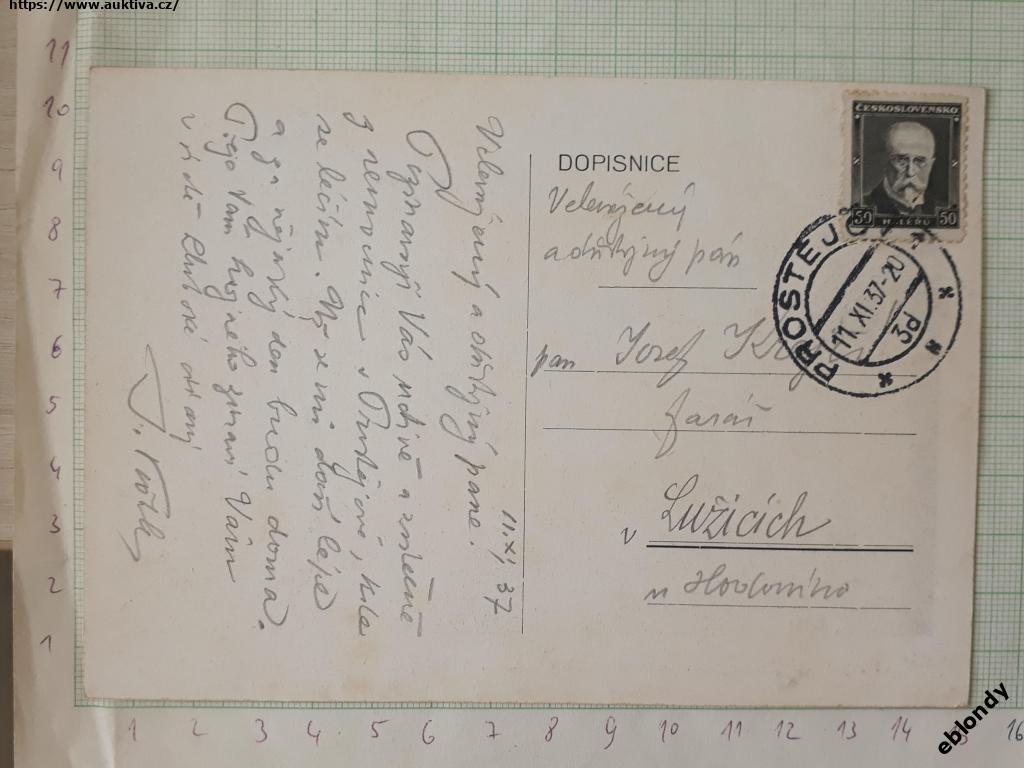 https://www.auktiva.cz/
11
10
9
8
7
6
5
4
3
2
1
11. XI. 37
Velevýjený a důstojný pane.
Vás
z nemocnice v Prostějově, kde
se léčím. Už se mi daří lépe
a za nějaký den budu doma.
Přeje Vám hojného zdraví Vám
v úctě
DOPISNICE
a důstojný pán
pan Josef
farář
v Lužicích
u Hodonína
ČESKOSLOVENSKO
50 50
PROSTĚJOV
11.XI.37-20
3d
1 2 3 4 5 6 7 8 9 10 11 12 13 14 16
eblondy